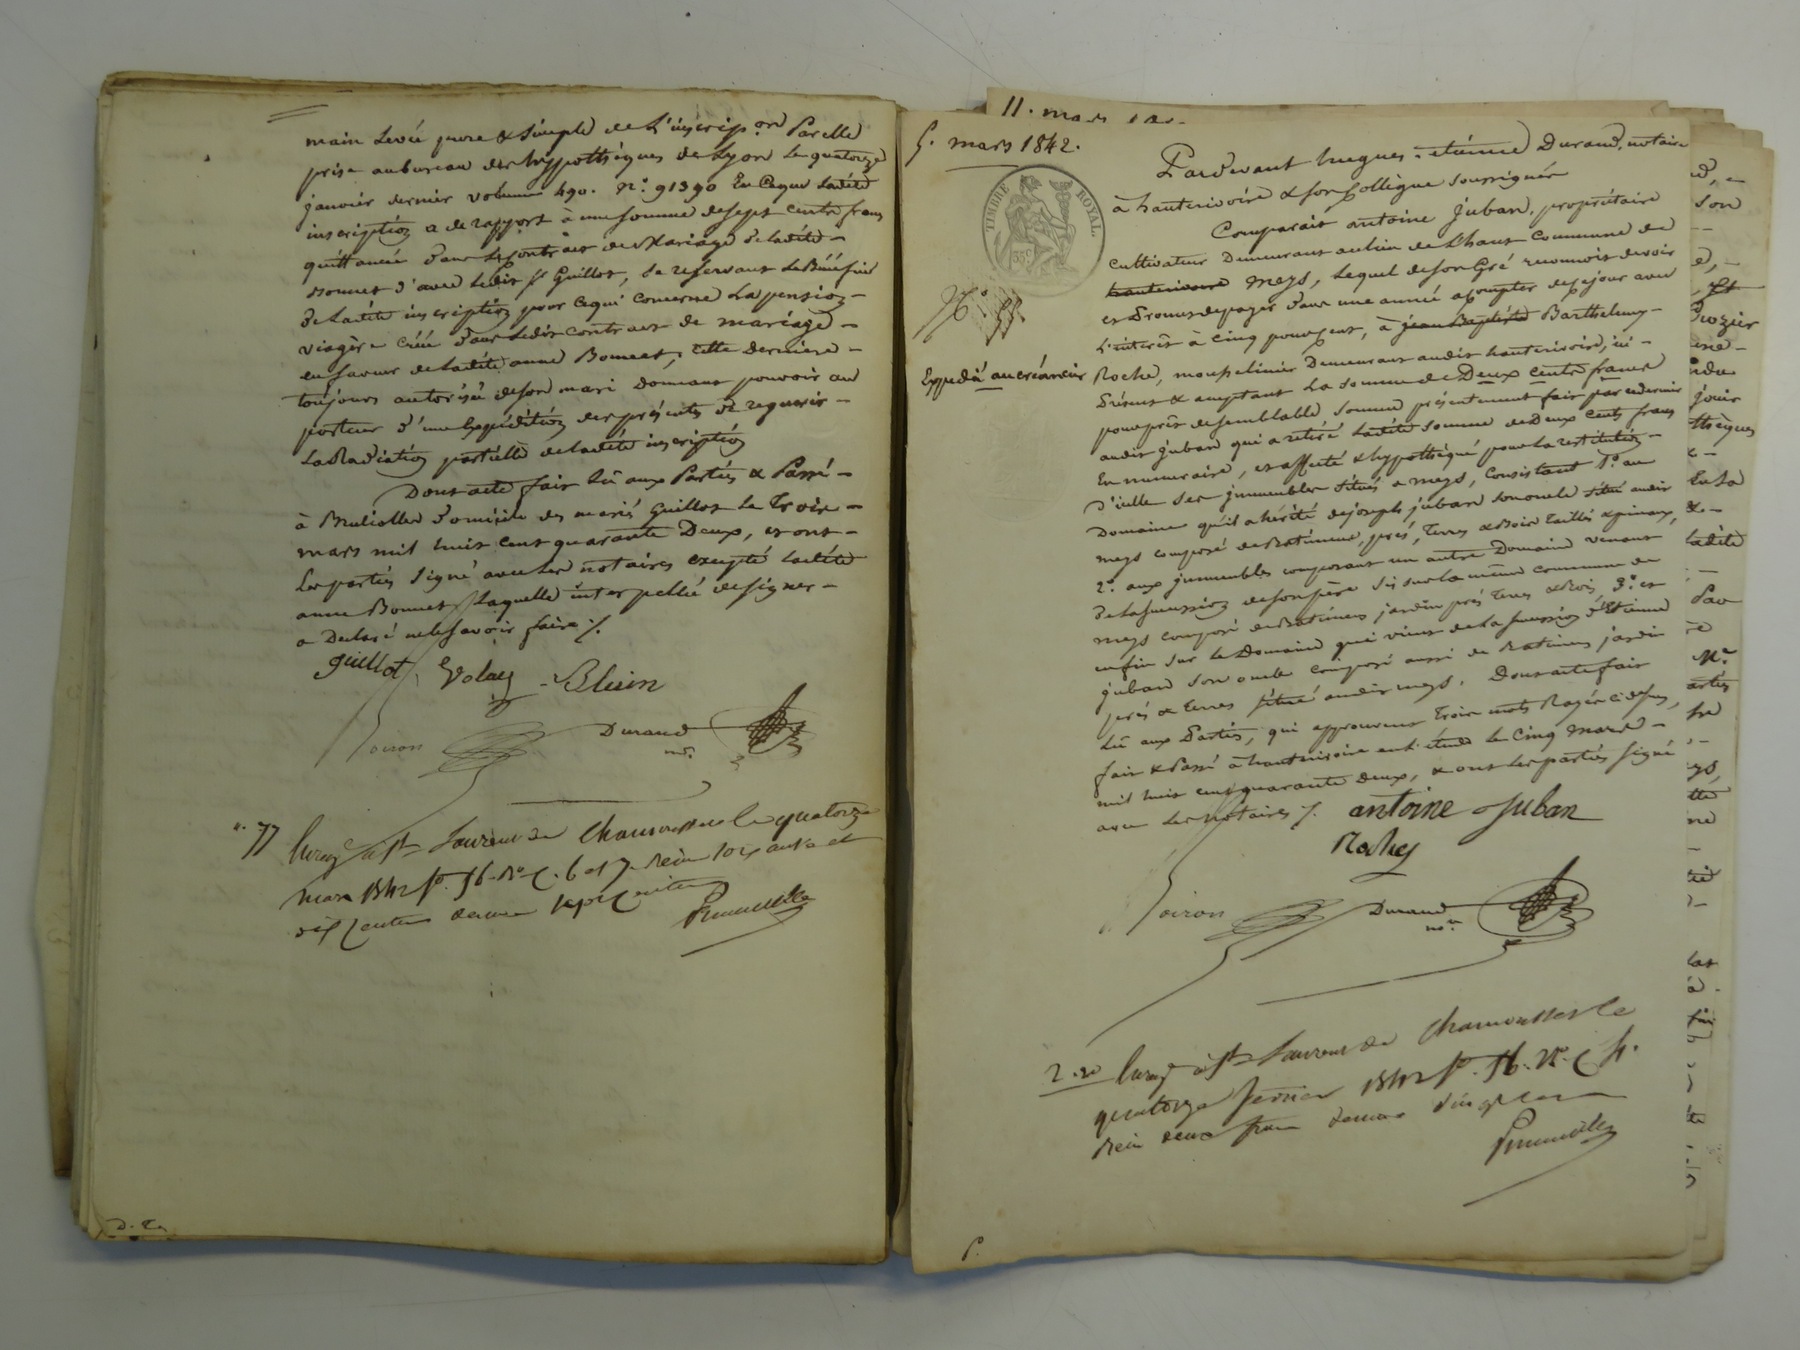 main Levée pure & Simple de L'inscrip.on Par elle
prise au bureau des hyppothèques de Lyon Le quatorze
janvier dernier volume 490. N.o 91390 En Ce que Ladite
inscription a de rapport à une somme de sept Cents francs
quittancée dans Le Contract de Mariage de Ladite
Bonnet d'avec Ledit Sr Guillot, Se réservant Le Bénéfice
de Ladite inscription pour Ce qui Concerne La pension
viagère Créée dans Ledit Contract de mariage
en faveur de Ladite anne Bonnet, Cette Dernière
toujours autorisée de son mari Donnant pouvoir au
porteur d'une Expédition des présentes de requérir
La Radiation partielle de Ladite inscription
Dont acte fait Lû aux Parties & Passé
à Brullolles Domicile des mariés Guillot Le Trois
mars mil huit cent quarante Deux, et ont
Les parties Signé avec Les notaires excepté Ladite
anne Bonnet Laquelle interpellée de signer
a Déclaré ne le savoir faire ./.
guillot Volay Blein
Durand
n.re
n. 77 Enreg.é à St Laurent de Chamousset le quatorze
mars 1842 f.o 56. R.o C. 6 et 7. Reçu soixante et
dix Centimes decime sept Centimes
D. La
11. mars
5. mars 1842.
Pardevant hugues-étienne Durand, notaire
à hauterivoire & son Collègue Soussignés
TIMBRE ROYAL
35c
Comparait antoine Juban, propriétaire
cultivateur Demeurant au lieu de Lhaut Commune de
hauterivoire Meys, Lequel de son Gré reconnoit devoir
et Promet de payer dans une année a Compter de ce jour avec
L'intérêt à Cinq pour Cent, à jean Baptiste Barthelemy
Expédié au créancier
Roche, Demeurant audit hauterivoire, ici
Présent & acceptant La Somme de Deux Cents francs
pour prêt de semblable Somme présentement fait par ce dernier
audit juban qui a retiré Ladite Somme de Deux Cents francs
En numéraire, et affecté & hyppothéqué pour La restitution
D'icelle Ses immeubles Situés a Meys, Consistant 1.o au
Domaine qu'il a hérité de joseph juban son oncle Situé audit
meys composé de Batiments, prés, Terres & Bois Taillis & pineaux,
2.o aux immeubles composant un autre Domaine venant
de La Succession de son père Sis Sur La même Commune de
meys Composé de Batiments jardin prés Terres & Bois, 3.o et
enfin Sur le Domaine qui vient de La Succession d'Etienne
juban Son oncle Composé aussi de Batimens jardin
prés & Terres Situé audit meys. Dont acte fait
Lû aux Parties, qui approuvent Trois mots Rayés ci dessus,
fait & Passé à hauterivoire en l'étude Le Cinq Mars
mil huit cent quarante Deux, & ont Les parties Signé
avec Les Notaires ./. antoine Juban
Roche
Durand
n.re
2.20 Enreg.é à St Laurent de Chamousset le
quatorze 1842 f.o 56. R.o C. 4.
Reçu deux francs decime vingt Centimes